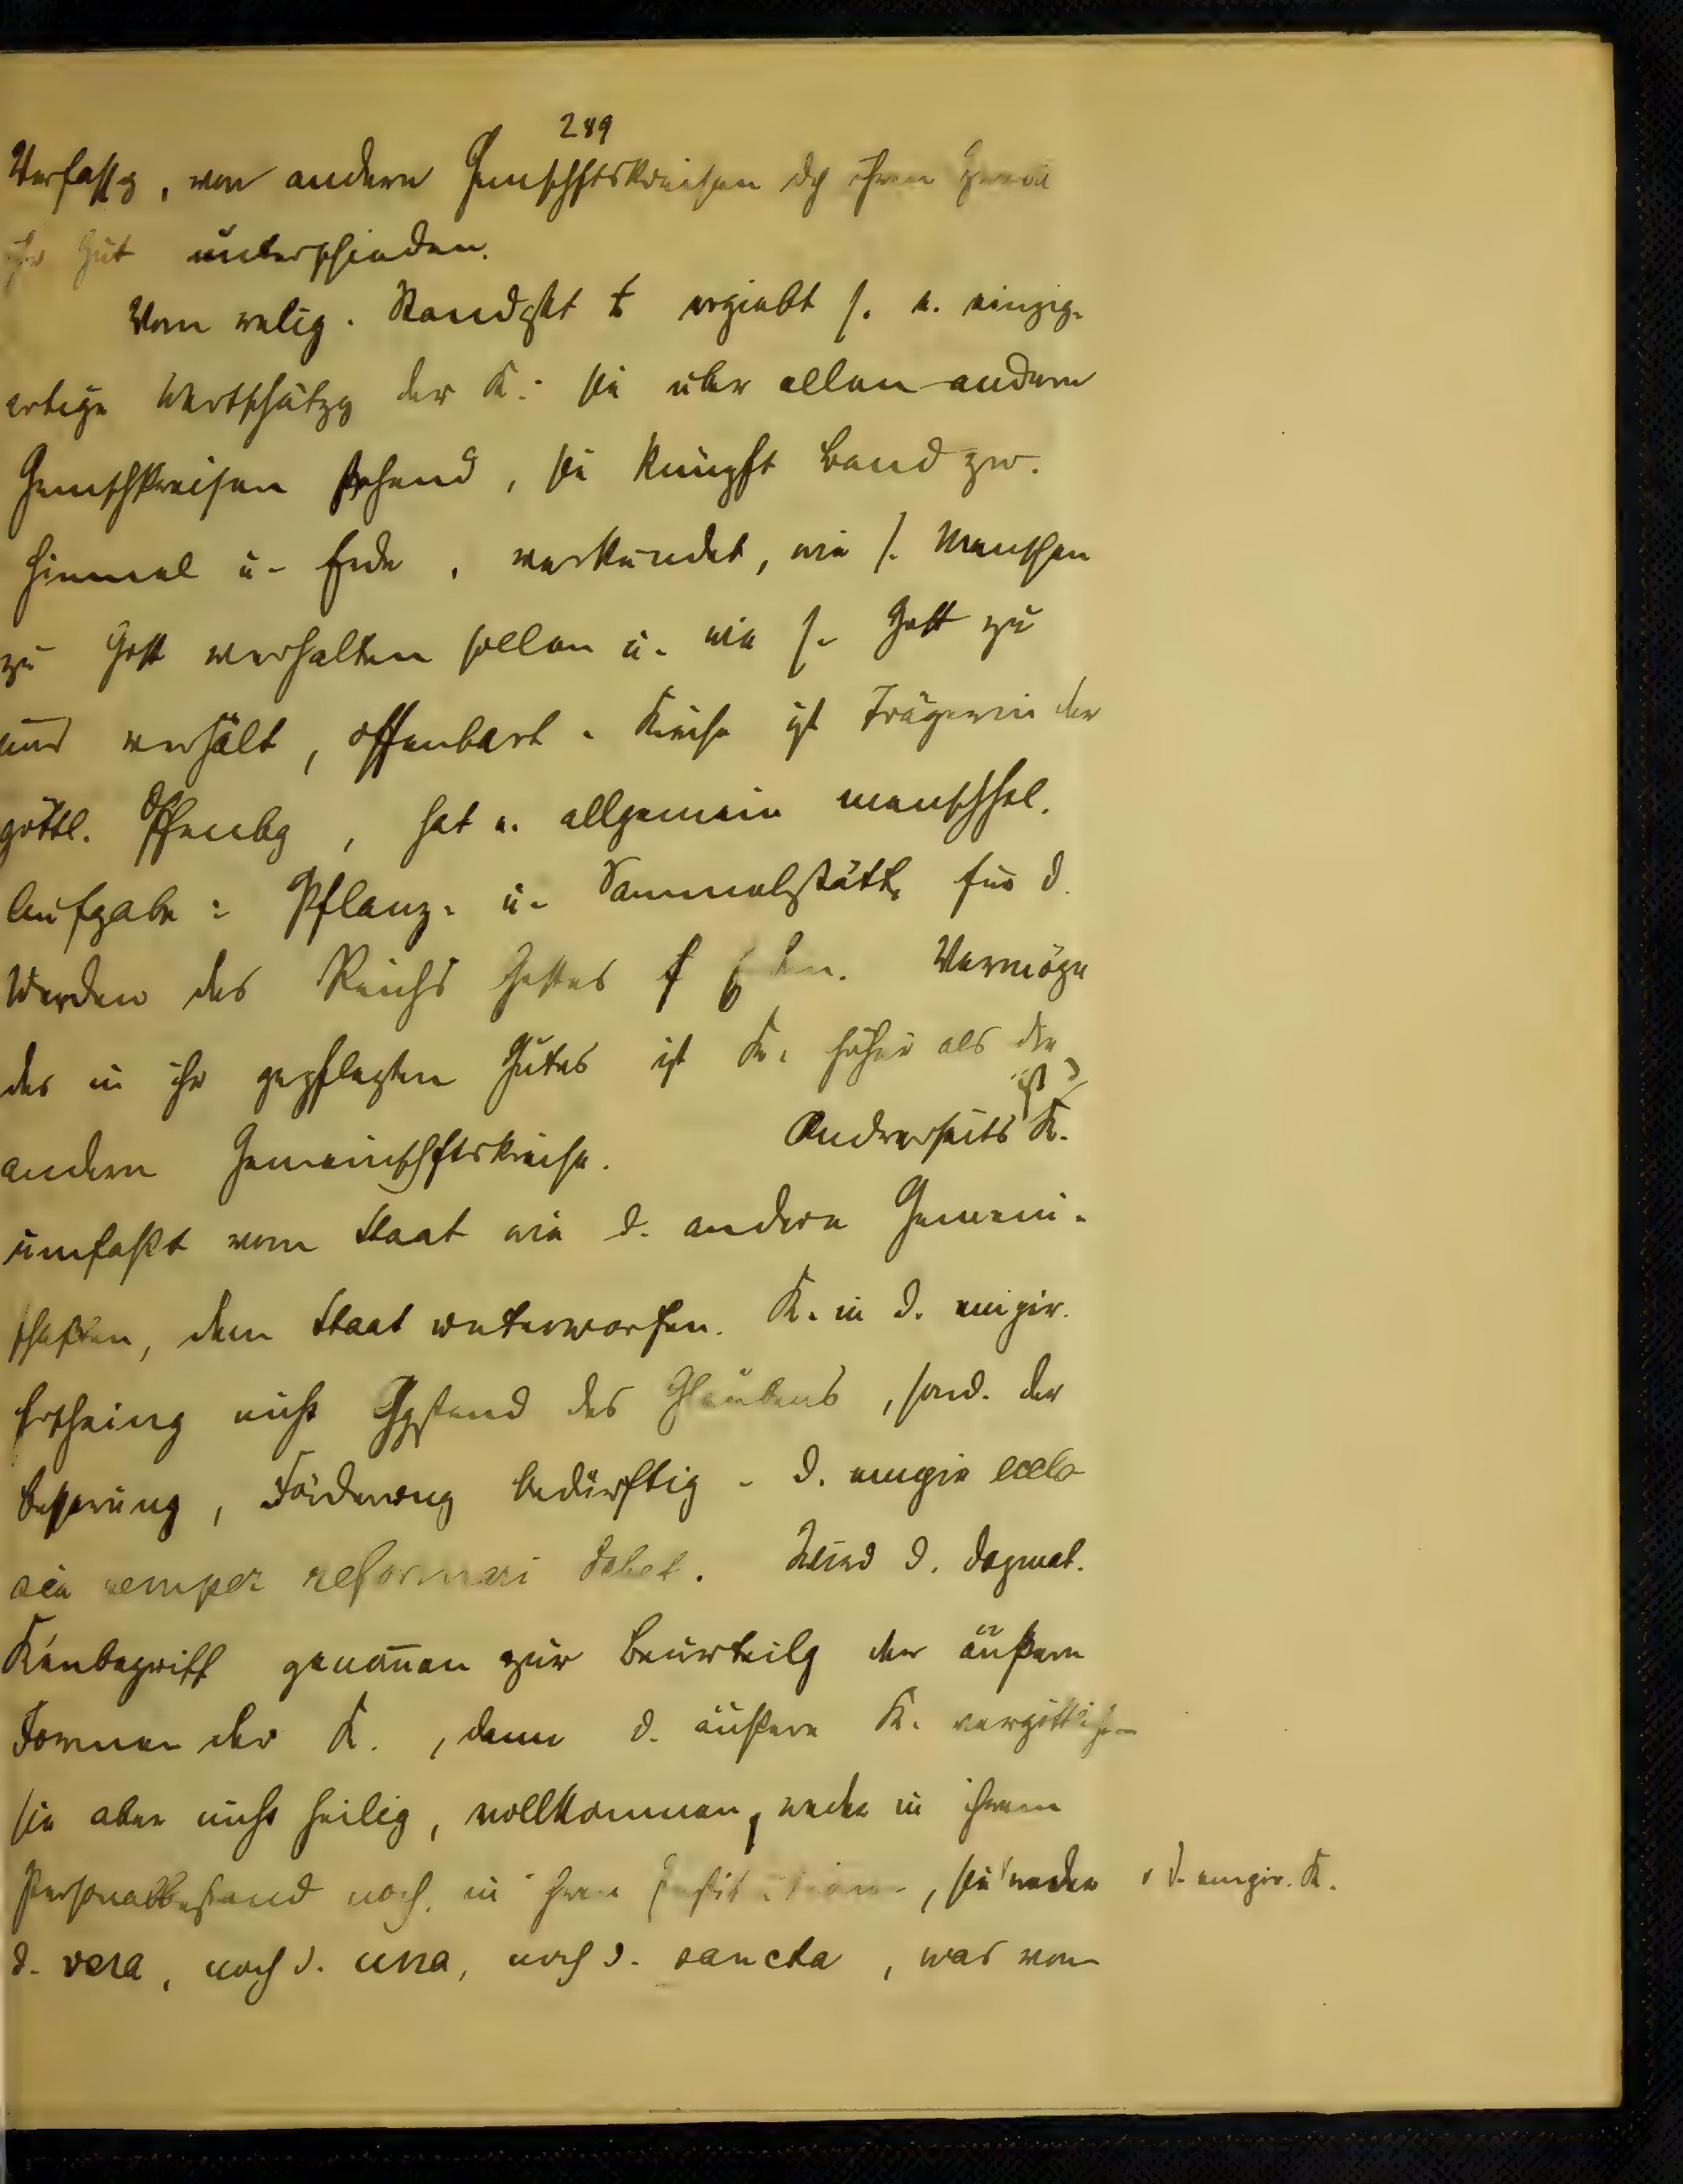 289
Verfassg, von andern Gemschftskreisen dch ihren
ihr Gut unterschieden.
Vom relig. Standpkt ergiebt s. e. einzig-
artige Wertschätzg der K.: sie über allen andern
Gemschkreisen stehend, sie knüpft Band zw.
Himmel u. Erde, verkündet, wie s. Menschen
zu Gott verhalten sollen u. wie s. Gott zu
uns verhält, offenbart. Kirche ist Trägerin der
göttl. Offenbg, hat e. allgemein menschhel.
Aufgabe: Pflanz- u. Sammelstätte für d.
Werden des Reichs Gottes
Vermöge
des in ihr gepflegten Gutes ist K. höher als die
andern Gemeinschftskreise. Andrerseits ist K.
umfaßt vom Staat wie d. andern Gemein-
schaften, dem Staat unterworfen. K. in d. empir.
Erscheing nicht Ggstand des Glaubens, sond. der
Besserung, Förderung bedürftig - d. empir eccle
sia semper reformari debet. Wird d. dogmat.
K'enbegriff genom̅en zur Beurteilg der äußern
Formen der K., dann d. äußere K. vergöttlicht
sie aber nicht heilig, vollkommen, weder in ihrem
Personalbestand noch in ihren Institutionen, sie weder
d. empir. K.
d. vera, noch d. una, noch d. sancta, was von